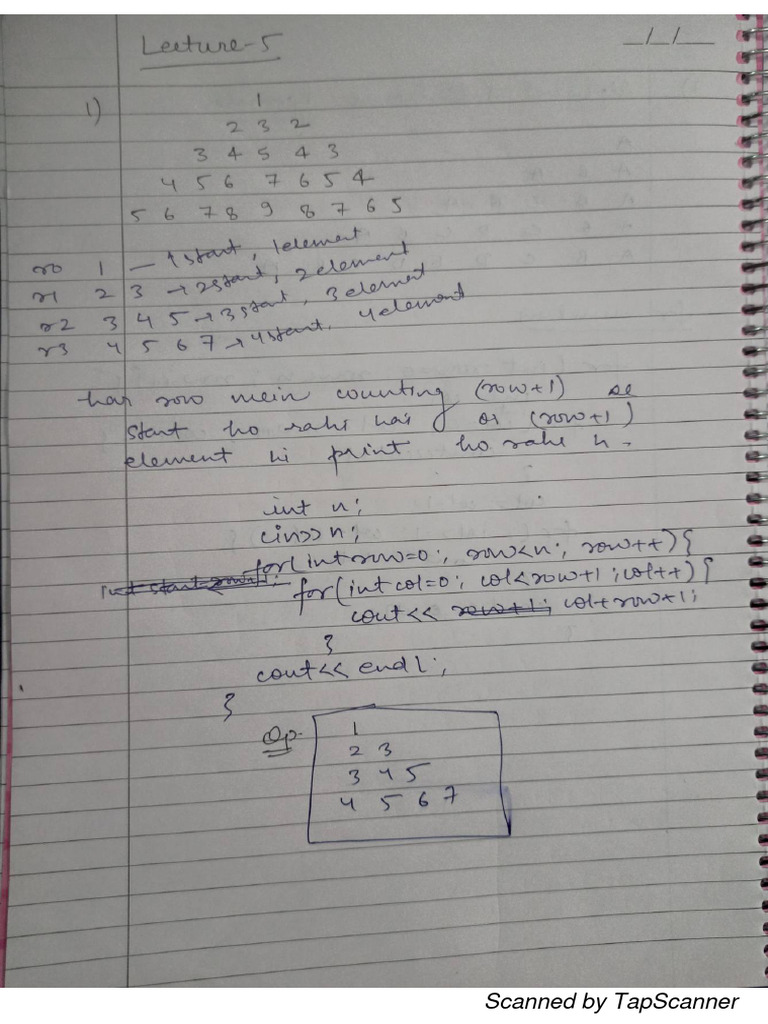 Lecture-5
_/_/_
1)
1
2 3 2
3 4 5 4 3
4 5 6 7 6 5 4
5 6 7 8 9 8 7 6 5
r0 1 — 1 start, 1 element
r1 2 3 → 2 start, 2 element
r2 3 4 5 → 3 start, 3 element
r3 4 5 6 7 → 4 start, 4 element
har row mein counting (row+1) se
start ho rahi hai or (row+1)
element hi print ho rahe h.
int n;
cin>> n;
for(int row=0; row<n; row++){
for(int col=0; col<row+1; col++){
cout<< row+1; col+row+1;
}
cout<< endl;
}
Op.
1
2 3
3 4 5
4 5 6 7
Scanned by TapScanner